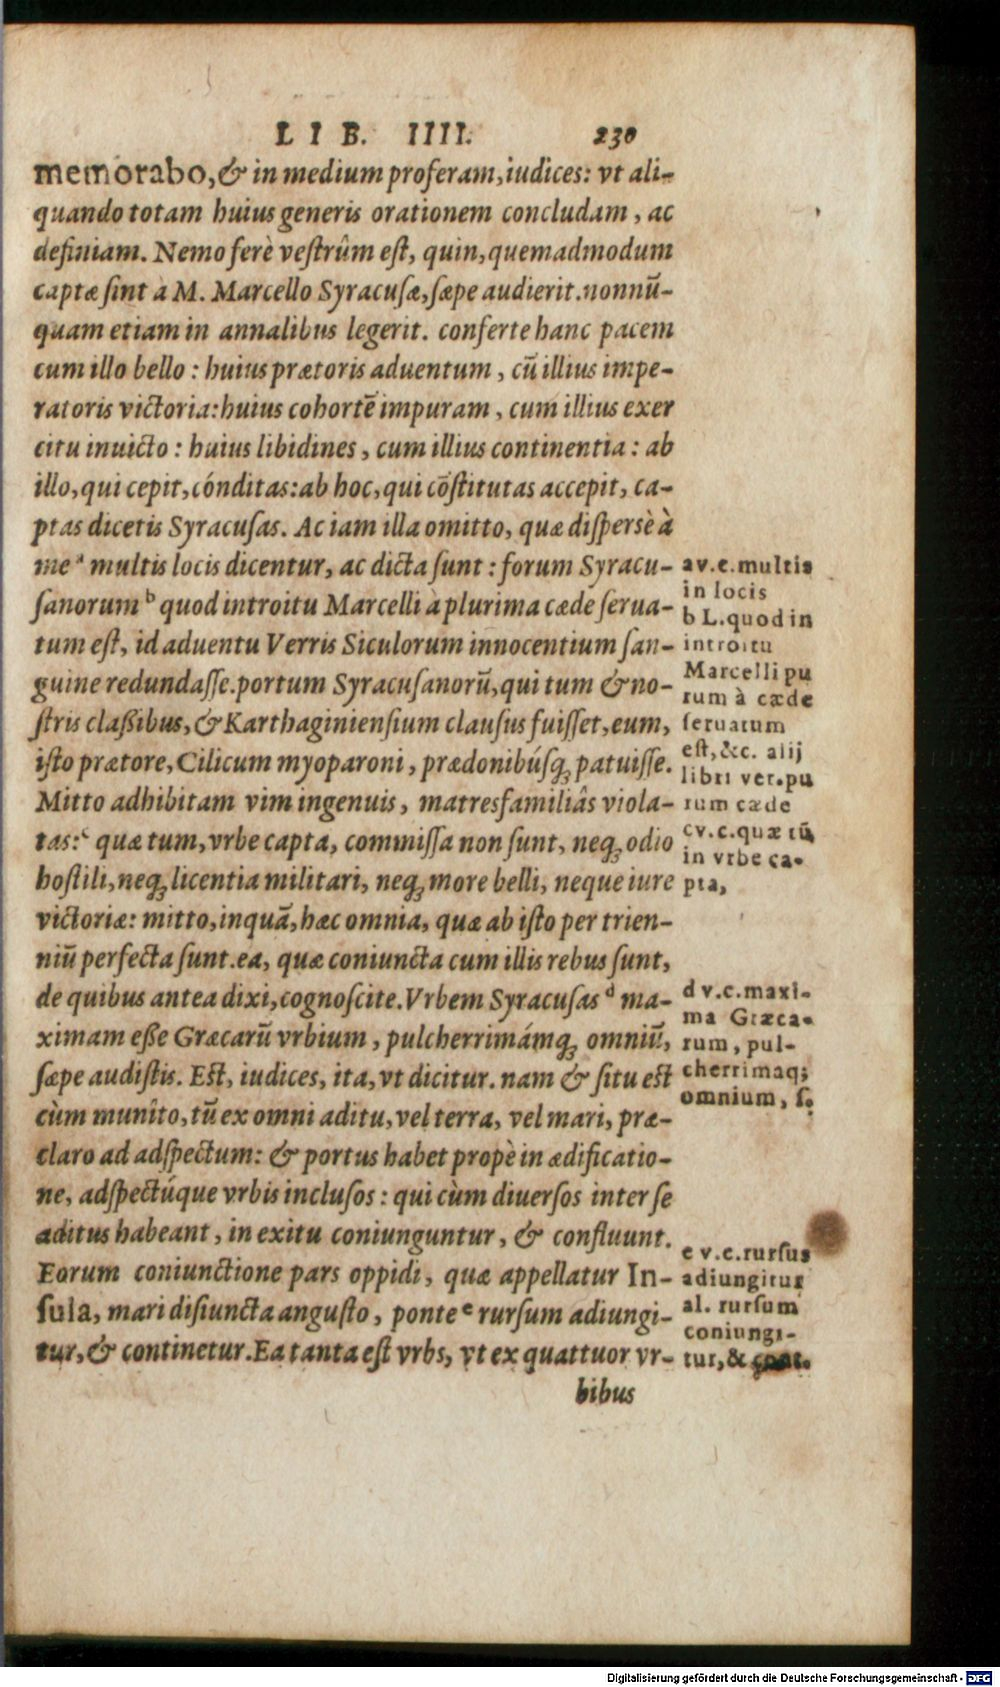 LIB. IIII. 230
memorabo, & in medium proferam, iudices: vt ali-
quando totam huius generis orationem concludam, ac
definiam. Nemo ferè veſtrûm eſt, quin, quemadmodum
captæ ſint à M. Marcello Syracuſæ, ſæpe audierit. nonnũ-
quam etiam in annalibus legerit. conferte hanc pacem
cum illo bello: huius prætoris aduentum, cũ illius impe-
ratoris victoria: huius cohortẽ impuram, cum illius exer
citu inuicto: huius libidines, cum illius continentia: ab
illo, qui cepit, cónditas: ab hoc, qui cõſtitutas accepit, ca-
ptas dicetis Syracuſas. Ac iam illa omitto, quæ diſpersè à
me ᵃ multis locis dicentur, ac dicta ſunt: forum Syracu-
ſanorum ᵇ quod introitu Marcelli à plurima cæde ſerua-
tum eſt, id aduentu Verris Siculorum innocentium ſan-
guine redundaſſe. portum Syracuſanorũ, qui tum & no-
ſtris claßibus, & Karthaginienſium clauſus fuiſſet, eum,
iſto prætore, Cilicum myoparoni, prædonibúſq; patuiſſe.
Mitto adhibitam vim ingenuis, matresfamiliâs viola-
tas: ᶜ quæ tum, vrbe capta, commiſſa non ſunt, neq; odio
hoſtili, neq; licentia militari, neq; more belli, neque iure
victoriæ: mitto, inquã, hæc omnia, quæ ab iſto per trien-
niũ perfecta ſunt. ea, quæ coniuncta cum illis rebus ſunt,
de quibus antea dixi, cognoſcite. Vrbem Syracuſas ᵈ ma-
ximam eße Græcarũ vrbium, pulcherrimámq; omniũ,
ſæpe audiſtis. Eſt, iudices, ita, vt dicitur. nam & ſitu eſt
cùm munîto, tũ ex omni aditu, vel terra, vel mari, præ-
claro ad adſpectum: & portus habet propè in ædificatio-
ne, adſpectúque vrbis incluſos: qui cùm diuerſos inter ſe
aditus habeant, in exitu coniunguntur, & confluunt.
Eorum coniunctione pars oppidi, quæ appellatur In-
ſula, mari diſiuncta anguſto, ponte ᵉ rurſum adiungi-
tur, & continetur. Ea tanta eſt vrbs, vt ex quattuor vr-
bibus
a v.c. multis
in locis
b L. quod in
introitu
Marcelli pu
rum à cæde
ſeruatum
eſt, &c. alij
libri vet. pu
rum cæde
c v.c. quæ tũ
in vrbe ca-
pta,
d v.c. maxi-
ma Græca-
rum, pul-
cherrimaq;
omnium, ſ.
e v.c. rurſus
adiungitur
al. rurſum
coniungi-
tur, &
Digitalisierung gefördert durch die Deutsche Forschungsgemeinschaft - DFG